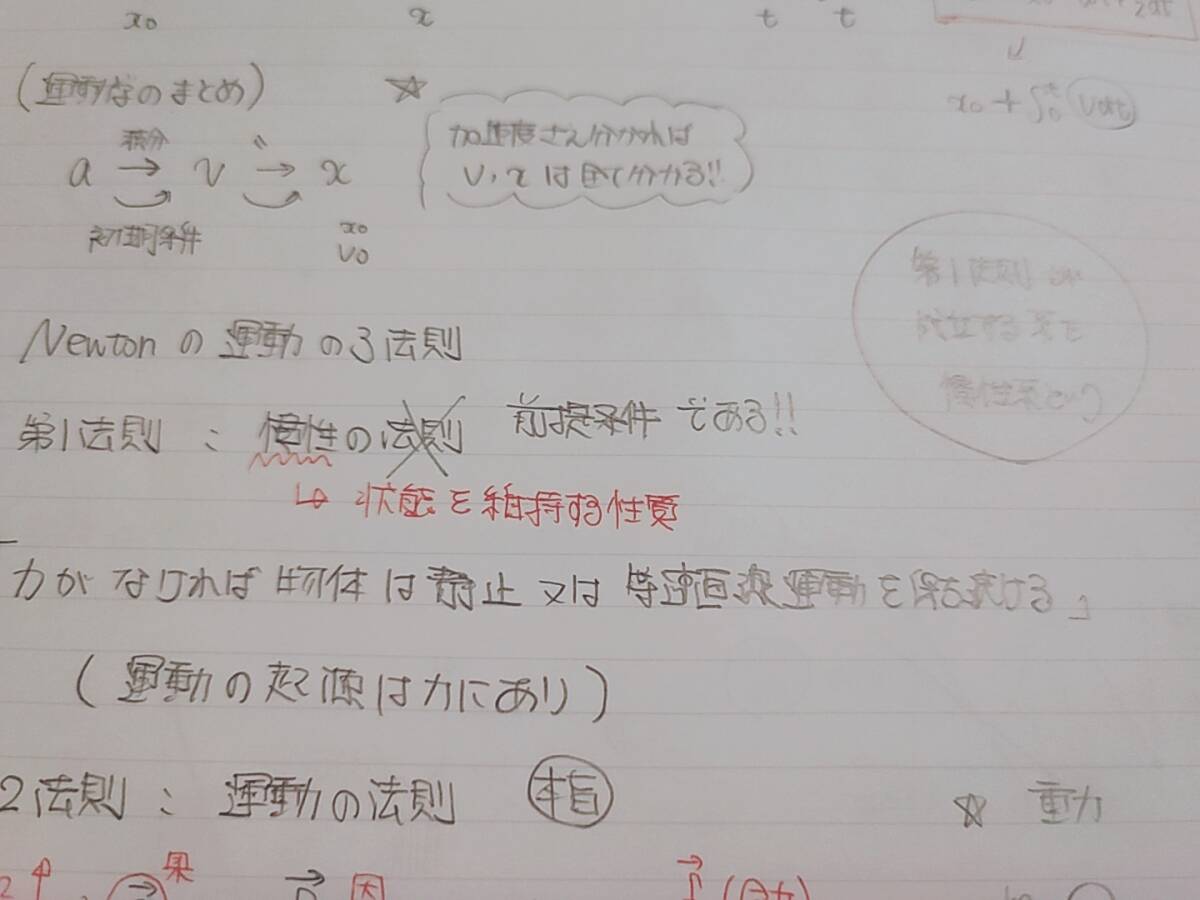 x₀ x t t
(運動学のまとめ) ☆
積分 〃
a → v → x
加速度さえ分かれば
v, x は全て分かる!!
x₀ + ∫₀ᵗ vdt
初期条件 x₀
v₀
第1法則が
成立する系を
慣性系という
Newtonの運動の3法則
第1法則 : 慣性の法則 前提条件である!!
↳ 状態を維持する性質
力がなければ物体は静止又は等速直線運動を保ち続ける」
(運動の起源は力にあり)
2法則 : 運動の法則 本旨
☆ 重力
果
因